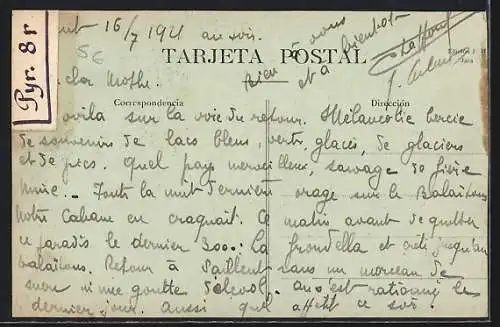 16/7 1921 au soir.
Pyr. 8r
56
TARJETA POSTAL
Bien à vous
et à bientôt
cher Mothe.
Correspondencia
Dirección
voilà sur la voie du retour. Mélancolie bercée
de souvenirs de lacs bleus, verts, glacés, de glaciers
et de pics. Quel pays merveilleux, sauvage de fière
Toute la nuit dernière orage sur le Balaïtous
Notre Cabane en craquait. Ce matin avant de quitter
ce paradis le dernier 300: La Frondella et crête jusqu'au
Balaïtous. Retour à Sallent sans un morceau de
sucre ni une goutte d'alcool. On s'est rationné le
dernier jour. Aussi quel appétit ce soir.